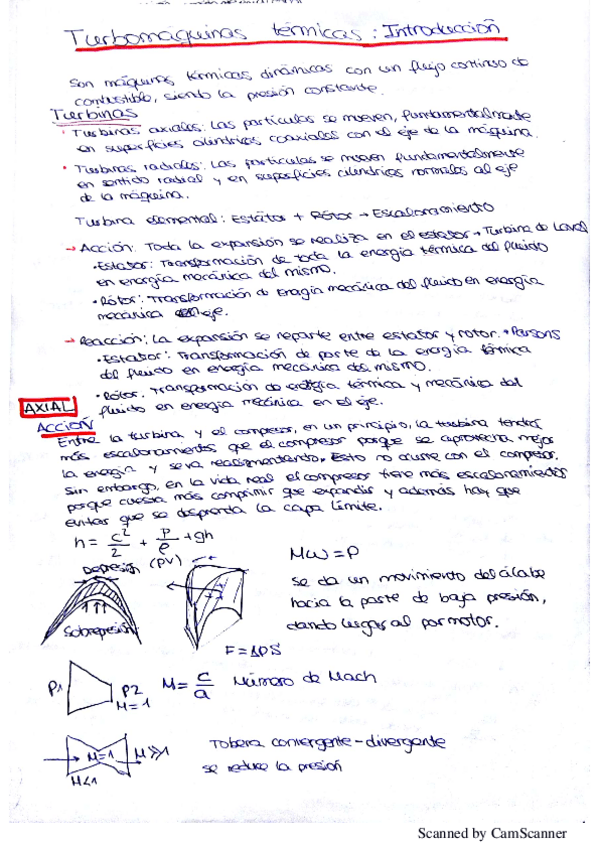 Turbomáquinas térmicas: Introducción
Son máquinas térmicas dinámicas con un flujo continuo de
combustible, siendo la presión constante.
Turbinas
• Turbinas axiales: Las partículas se mueven, fundamentalmente
en superficies cilíndricas coaxiales con el eje de la máquina.
• Turbinas radiales: Las partículas se mueven fundamentalmente
en sentido radial y en superficies cilíndricas normales al eje
de la máquina.
Turbina elemental: Estátor + Rótor → Escalonamiento
→ Acción: Toda la expansión se realiza en el estator → Turbina de Laval
• Estator: Transformación de toda la energía térmica del fluido
en energía mecánica del mismo.
• Rótor: Transformación de energía mecánica del fluido en energía
mecánica eje.
→ Reacción: La expansión se reparte entre estator y rotor. • Parsons
• Estator: Transformación de parte de la energía térmica
del fluido en energía mecánica del mismo.
• Rótor: Transformación de energía térmica y mecánica del
fluido en energía mecánica en el eje.
AXIAL
ACCIÓN
Entre la turbina y el compresor, en un principio, la turbina tendrá
más escalonamientos que el compresor porque se aprovecha mejor
la energía y se va Esto no ocurre con el compresor.
Sin embargo, en la vida real el compresor tiene más escalonamientos
porque cuesta más comprimir que expandir y además hay que
evitar que se desprenda la capa límite.
h = c²/2 + P/ρ + gh
(PV)
Depresión
Sobrepresión
Mω = P
se da un movimiento del álabe
hacia la parte de baja presión,
dando lugar al par motor.
F = ΔPS
P1 P2
M = 1
M = c/a Número de Mach
M<1 M=1 M≫1
Tobera convergente - divergente
se reduce la presión
Scanned by CamScanner